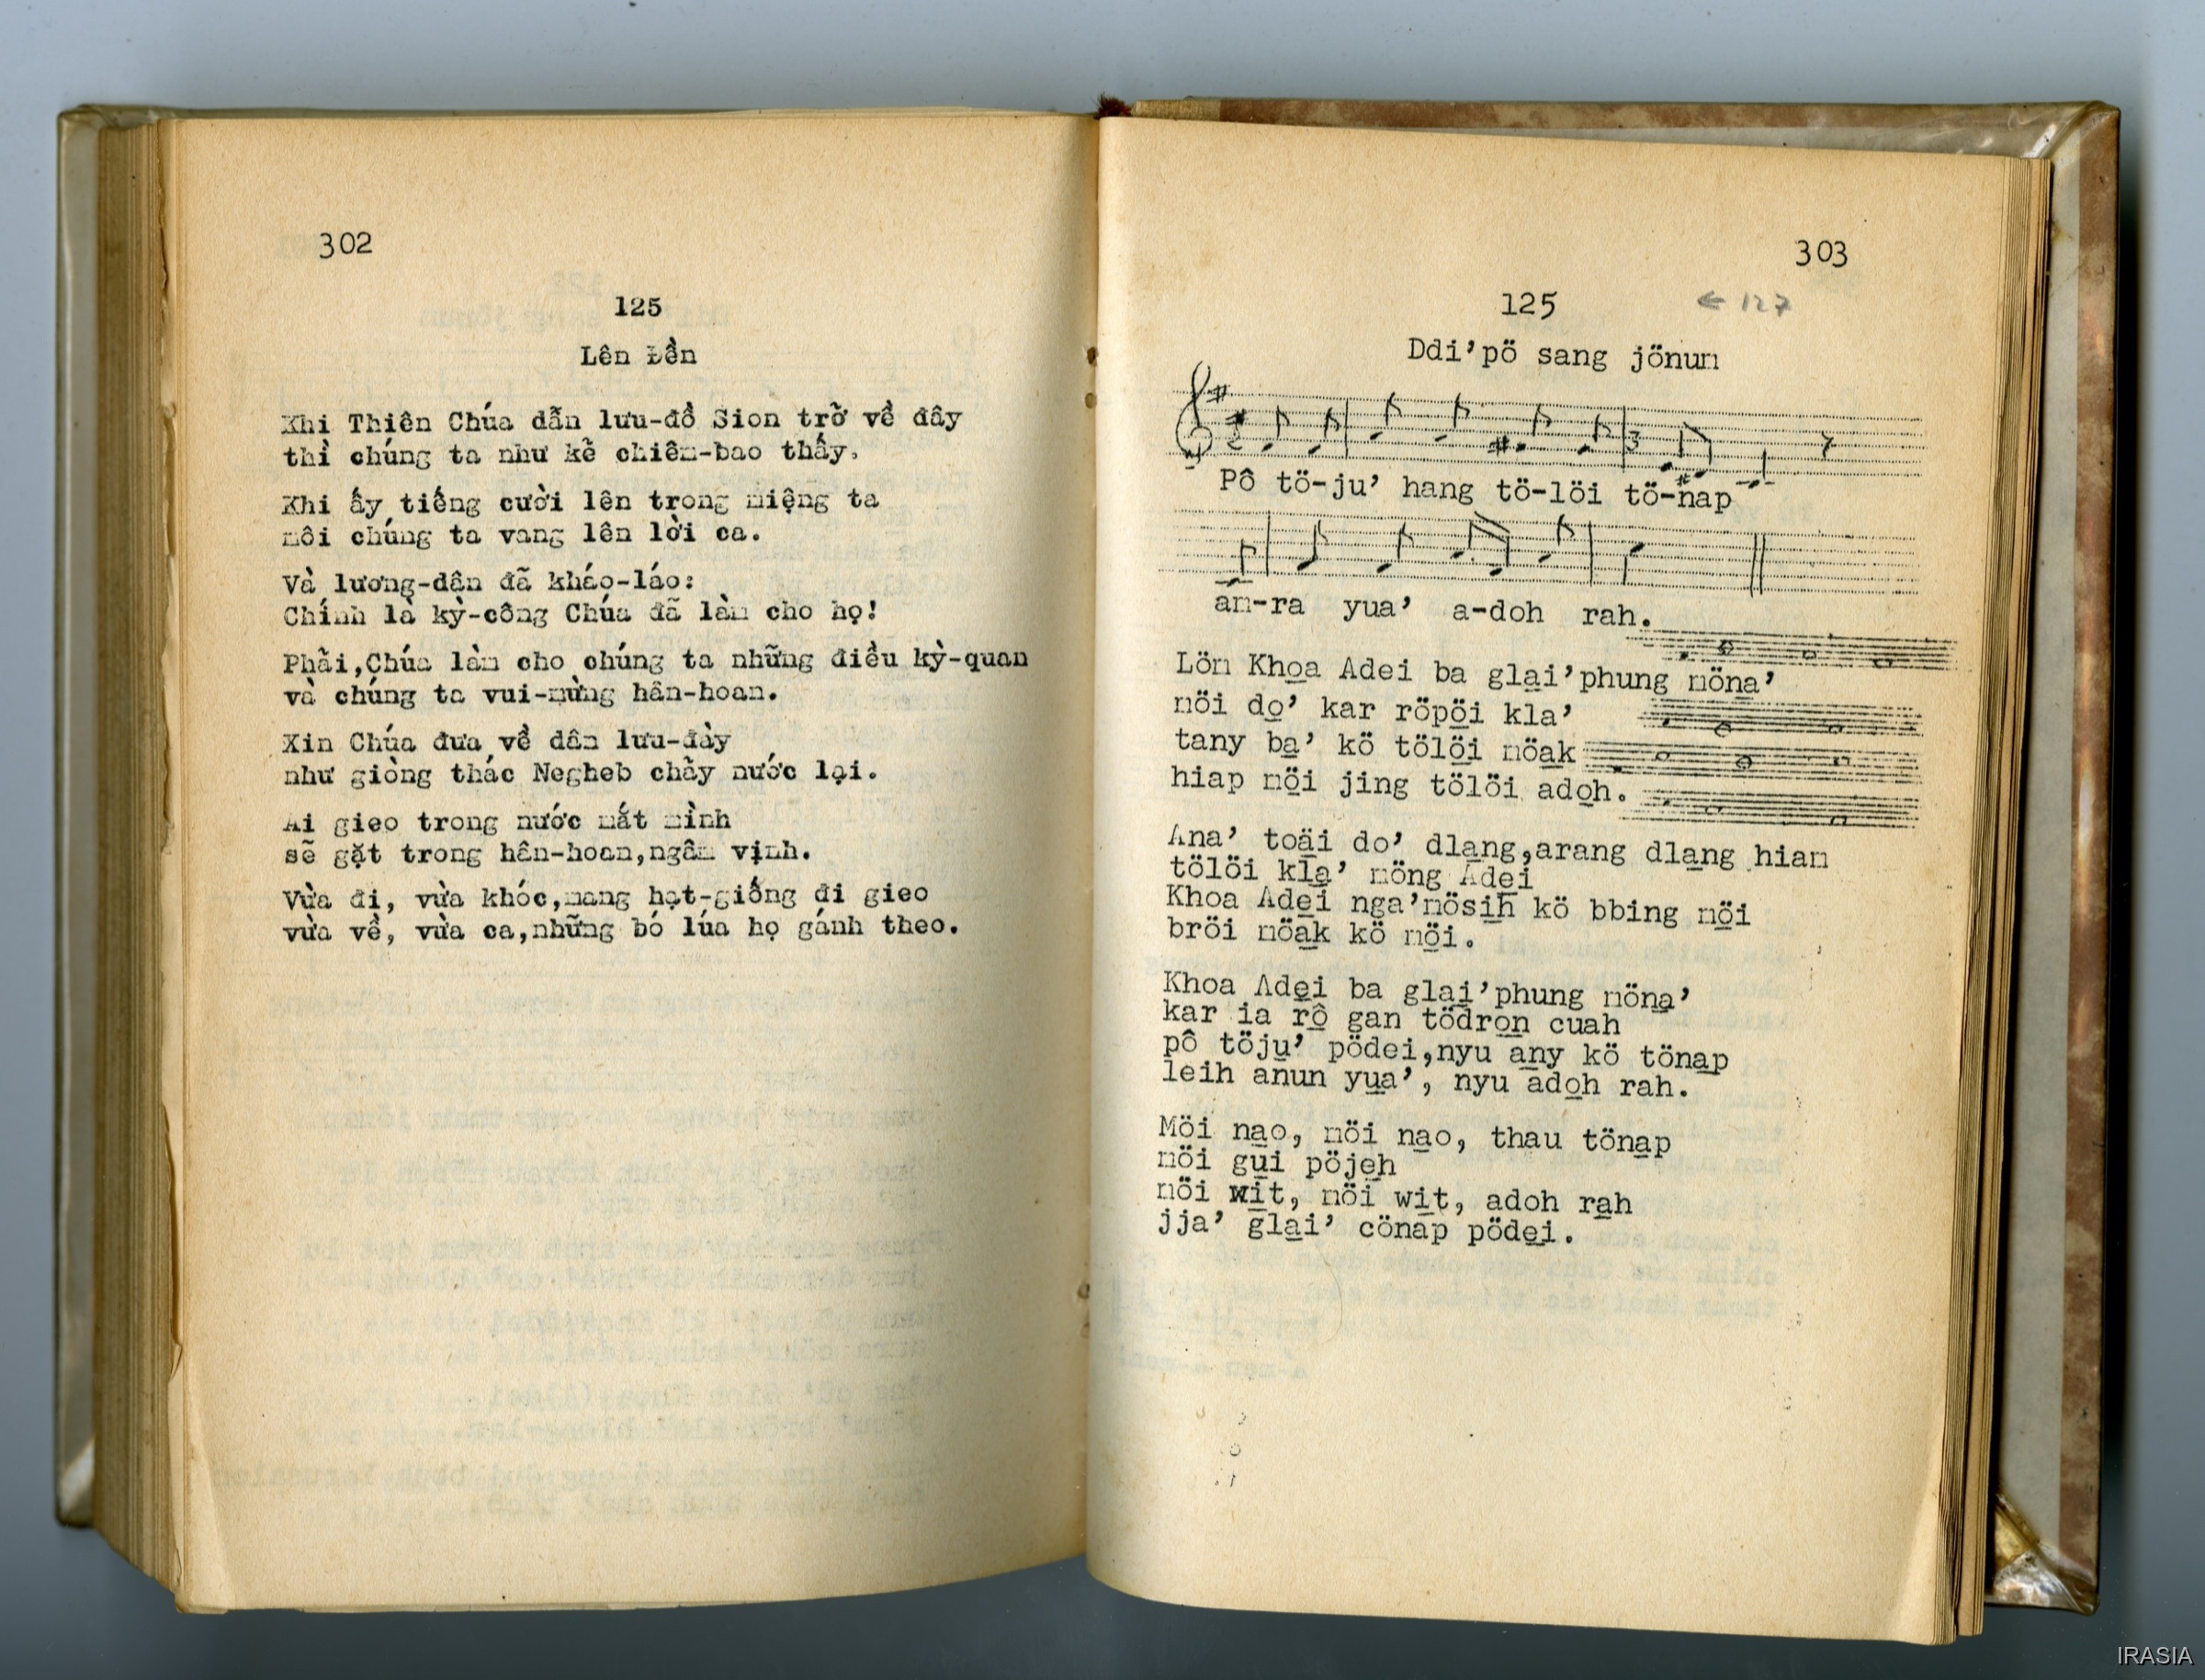 302
125
Lên Đền
Khi Thiên Chúa dẫn lưu-đồ Sion trở về đây
thì chúng ta như kẽ chiêm-bao thấy.
Khi ấy tiếng cười lên trong miệng ta
môi chúng ta vang lên lời ca.
Và lương-dân đã kháo-láo:
Chính là kỳ-công Chúa đã làm cho họ!
Phải,Chúa làm cho chúng ta những điều kỳ-quan
và chúng ta vui-mừng hân-hoan.
Xin Chúa đưa về dân lưu-đày
như giòng thác Negheb chãy nước lại.
Ai gieo trong nước mắt mình
sẽ gặt trong hân-hoan,ngâm vịnh.
Vừa đi, vừa khóc,mang hạt-giống đi gieo
vừa về, vừa ca,những bó lúa họ gánh theo.
303
125 ← 127
Ddi’pö sang jönum
Pô tö-ju’ hang tö-löi tö-nap
an-ra yua’ a-doh rah.
Löm Kho̲a Adei ba gla̲i’phung möna̲’
möi do̲’ kar röpö̲i kla’
tany ba̲’ kö tölö̲i möa̲k
hiap mö̲i jing tölöi ado̲h.
Ana’ toä̲i do’ dla̲ng,arang dla̲ng hiam
tölöi kla̲’ möng Ade̲i
Khoa Ade̲i nga’mösi̲h kö bbing mö̲i
bröi möa̲k kö mö̲i.
Khoa Ade̲i ba gla̲i̲’phung möna̲’
kar ia rô̲ gan tödro̲n cuah
pô töju̲’ pödei,nyu a̲ny kö töna̲p
leih anun yu̲a’, nyu ado̲h rah.
Möi na̲o, möi na̲o, thau töna̲p
möi gu̲i pöje̲h
möi wi̲t, möi wi̲t, adoh ra̲h
jja’ gla̲i’ cönap pöde̲i.
IRASIA